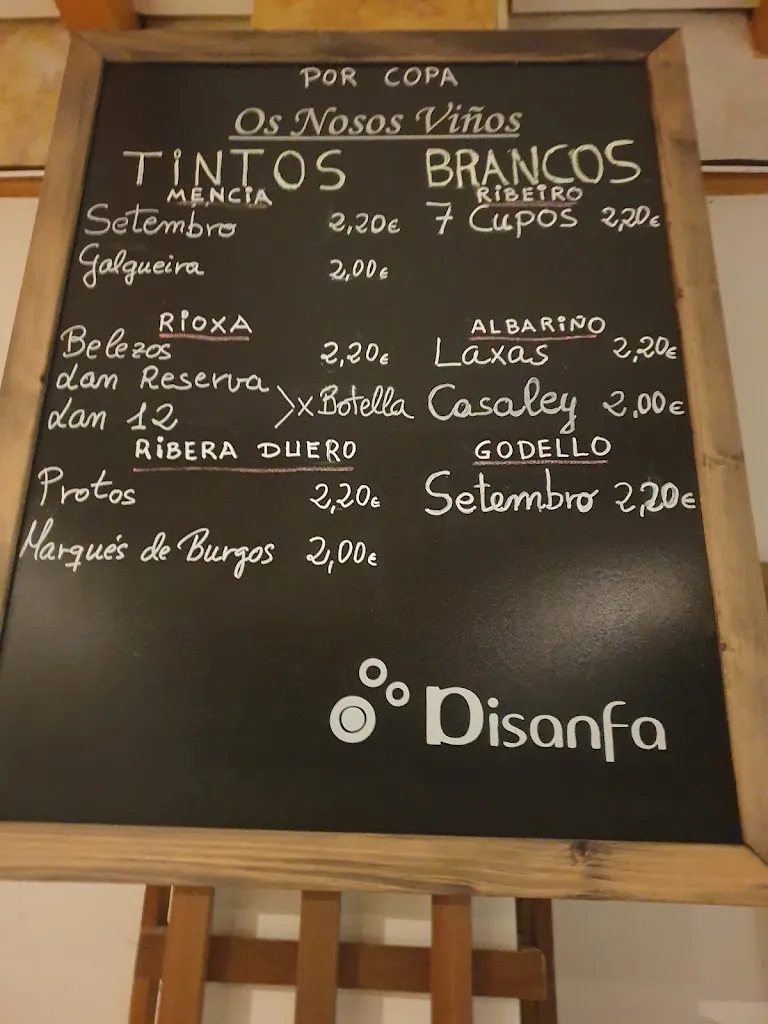 POR COPA
Os Nosos Viños
TINTOS
MENCIA
Setembro 2,20€
Galgueira 2,00€
RIOXA
Belezos 2,20€
Lan Reserva
Lan 12 >x Botella
RIBERA DUERO
Protos 2,20€
Marqués de Burgos 2,00€
BRANCOS
RIBEIRO
7 Cupos 2,20€
ALBARIÑO
Laxas 2,20€
Casaley 2,00€
GODELLO
Setembro 2,20€
Disanfa